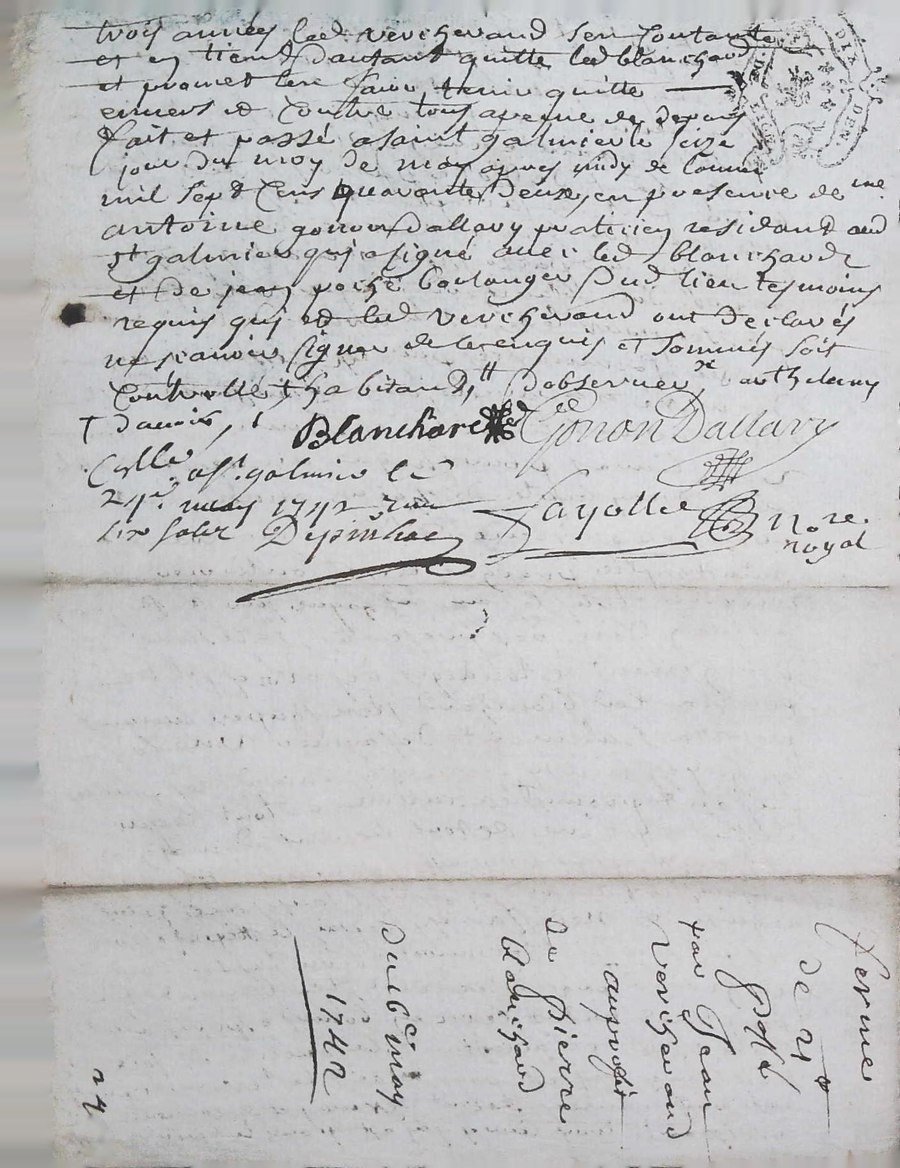 trois années led verchérand sen contante
et en tiend dautant quitte led blanchard
et promet len faire tenir quitte
envers et contre tous apeine de depans
fait et passé a saint galmier le seize
jour du moy de may apres midy de lannée
mil sept cens quarante deux, en presence de me.
antoine gonon dallary praticien residant aud
st galmier qui a signé avec led blanchard
et de jean boulanger dud lieu tesmoins
requis qui et led verchérand ont declarés
ne scavoir signer de ce enquis et sommés soit
controllé † habitant
† davoir
Blanchard Gonon Dallary
Cytlle a st. galmier le
21e. may 1742
six solz Depinhac fayolle nore.
royal
ferme
de 21
par Jean
verchérand
au profit
de Pierre
blanchard
du 16e may
1742